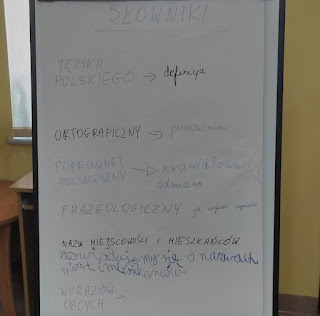 SŁOWNIKI
JĘZYKA
POLSKIEGO → definicja
ORTOGRAFICZNY → pisownia
POPRAWNEJ
POLSZCZYZNY → prawidłowa
odmiana
FRAZEOLOGICZNY
NAZW MIEJSCOWOŚCI I MIESZKAŃCÓW
dowiadujemy się o nazwach
miast i mieszkańców
WYRAZÓW
OBCYCH →